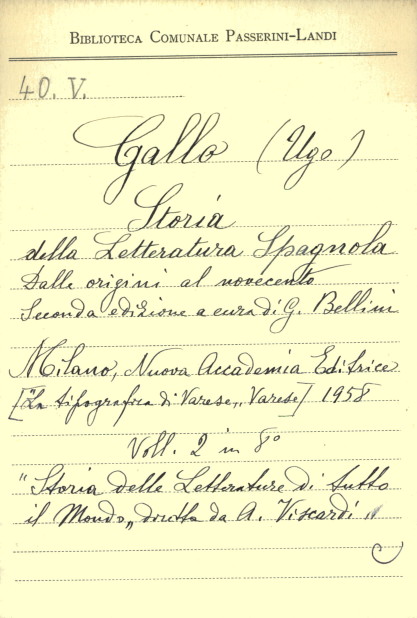 BIBLIOTECA COMUNALE PASSERINI-LANDI
40. V.
Gallo (Ugo)
Storia
della Letteratura Spagnola
Dalle origini al novecento
Seconda edizione a cura di G. Bellini
Milano, Nuova Accademia Editrice
["La tipografica di Varese", Varese] 1958
Voll. 2 in 8°
"Storia delle Letterature di tutto
il Mondo" diretta da A. Viscardi "